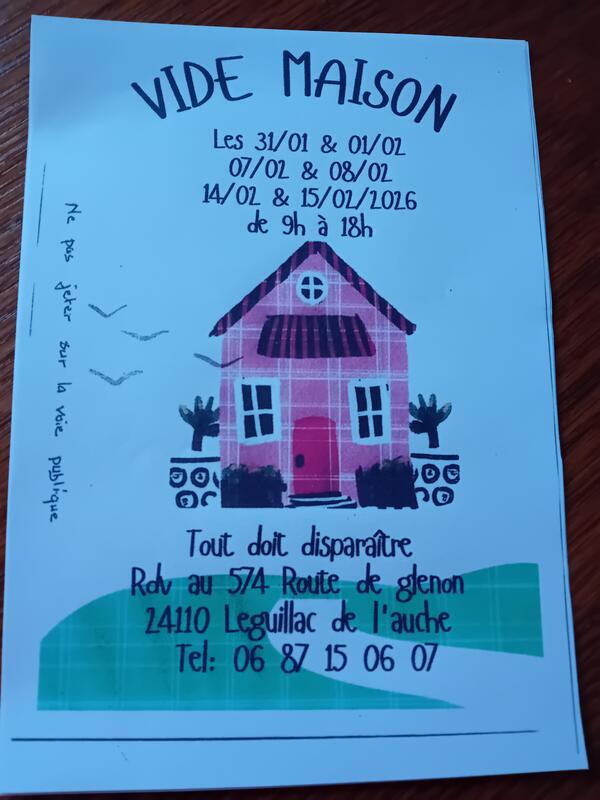 VIDE MAISON
Les 31/01 & 01/02
07/02 & 08/02
14/02 & 15/02/2026
de 9h à 18h
Ne pas jeter sur la voie publique
Tout doit disparaître
Rdv au 574 Route de glenon
24110 Leguillac de l'auche
Tel: 06 87 15 06 07